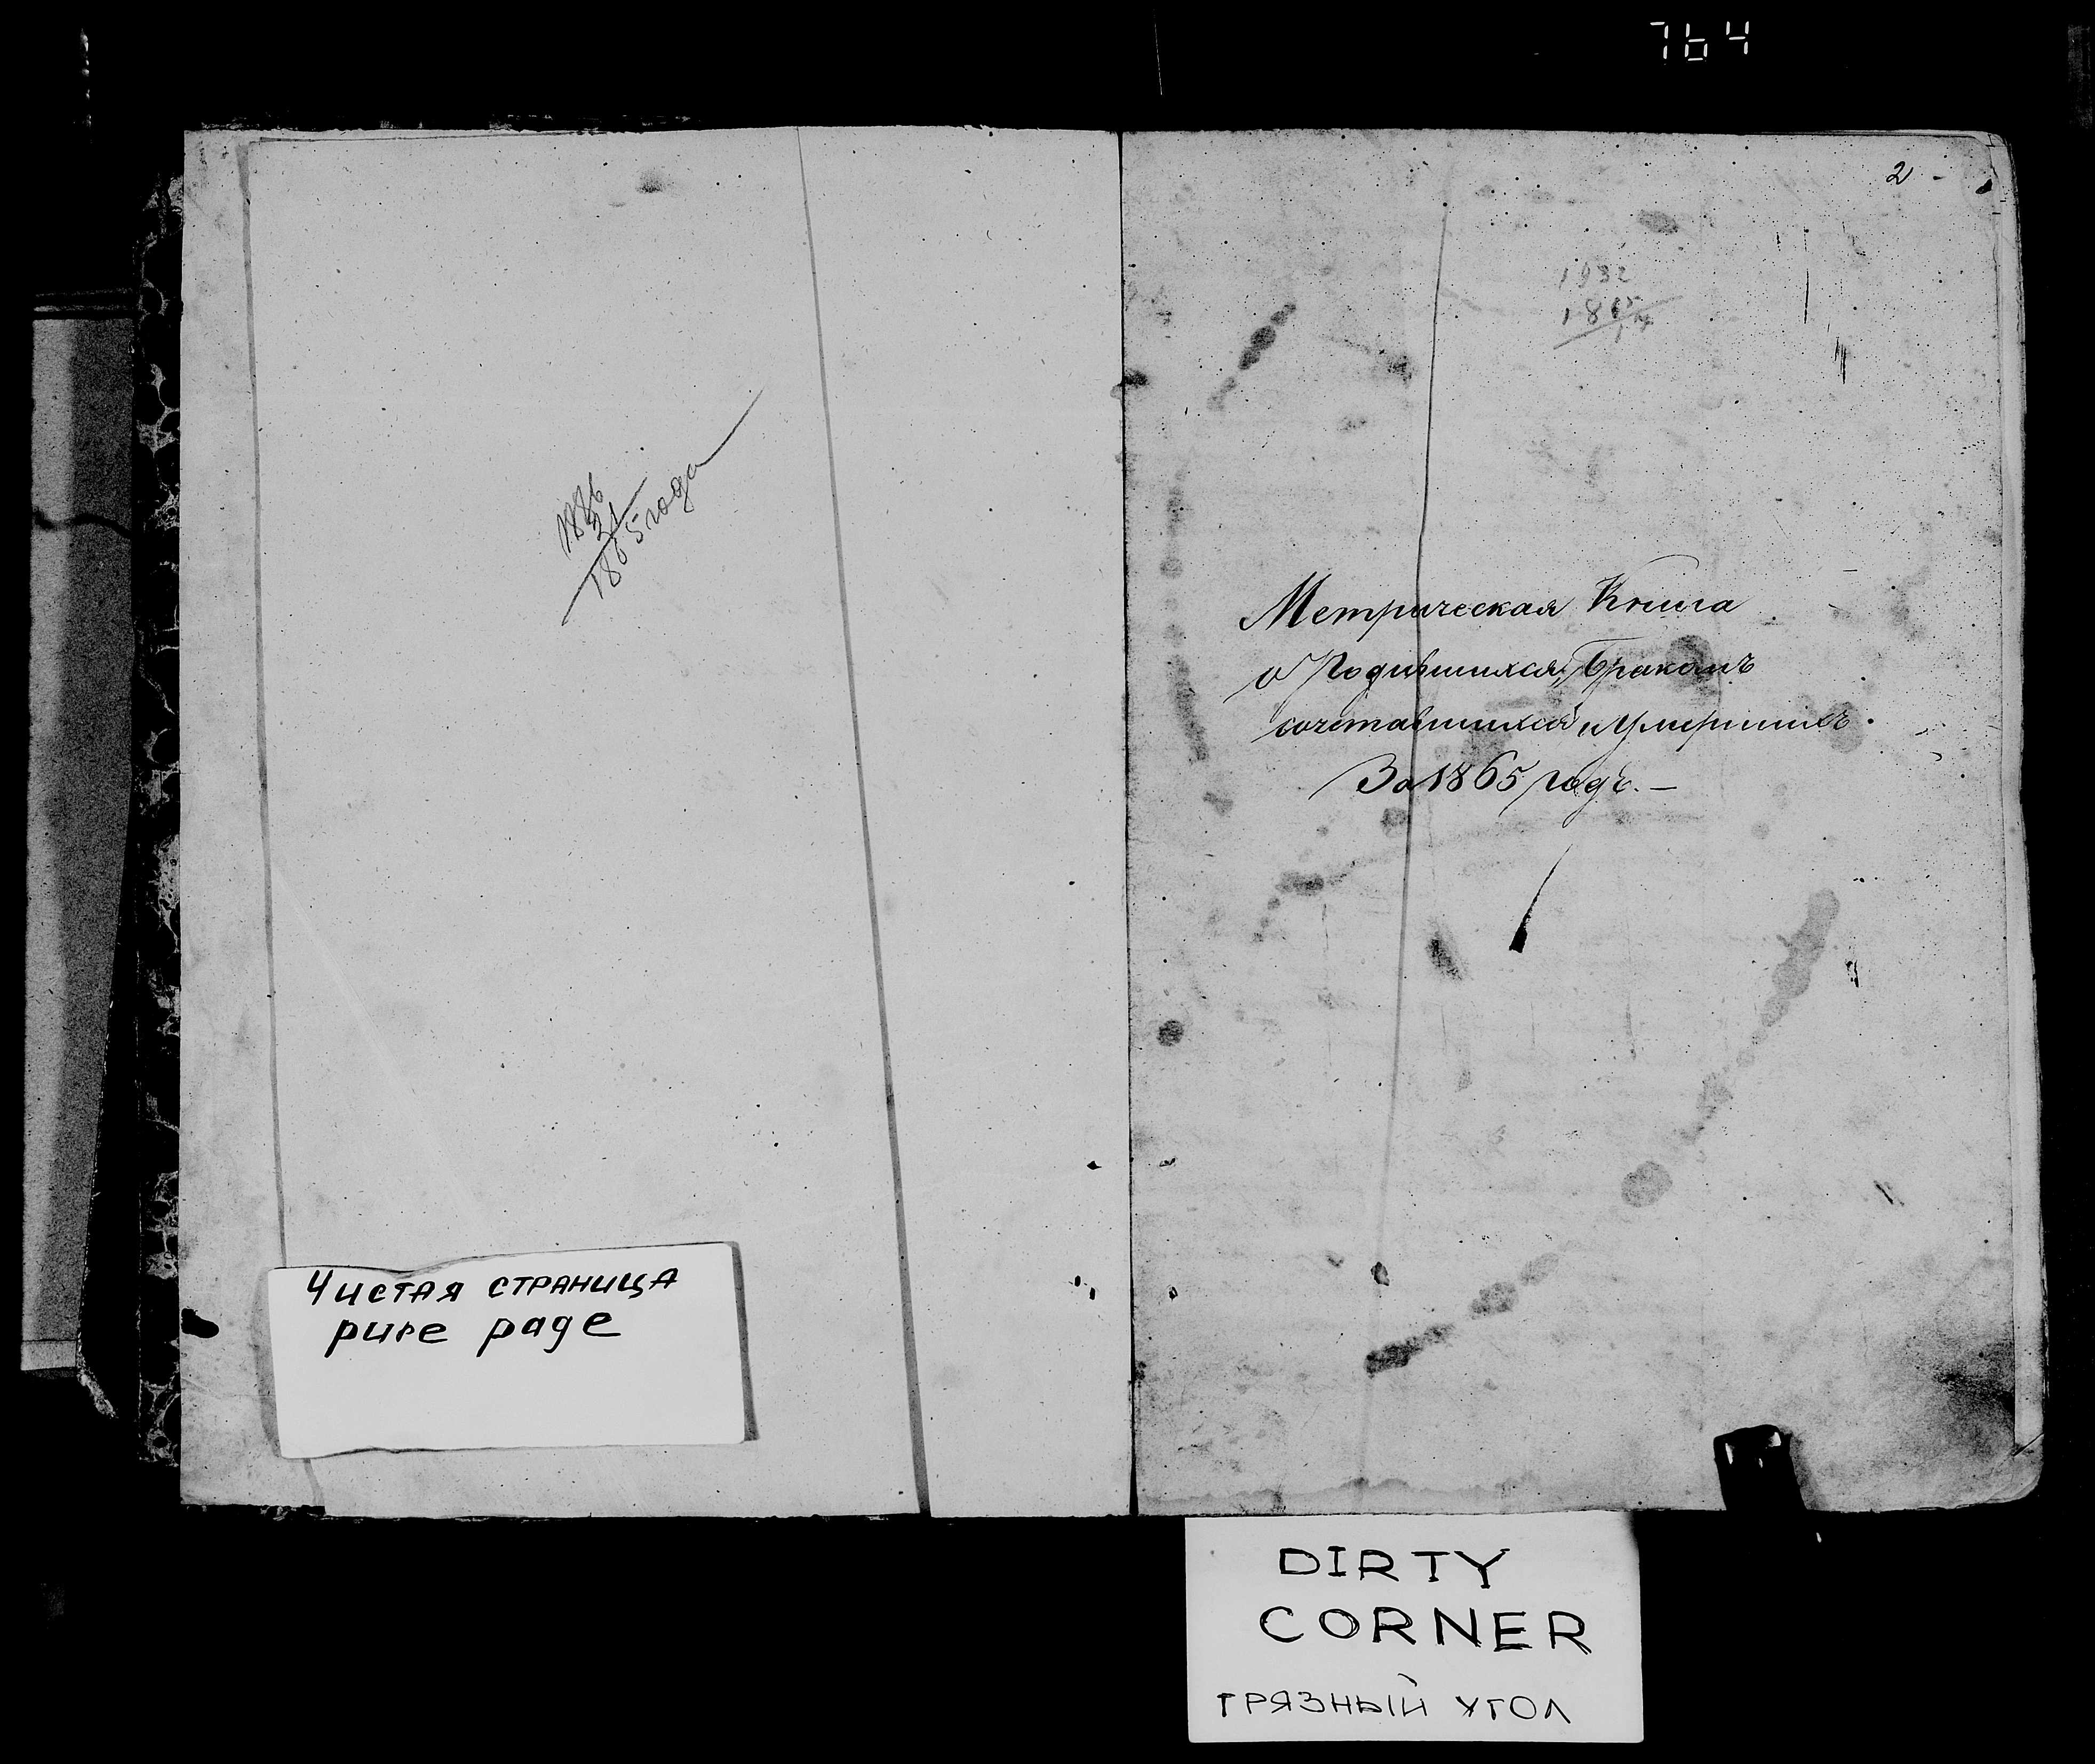 764
2
1932
1865 года
Метрическая Книга
о Родившихся, Бракомъ
сочетавшихся и Умершихъ.
За 1865 годъ. —
Чистая страница
pure page
DIRTY
CORNER
грязный угол